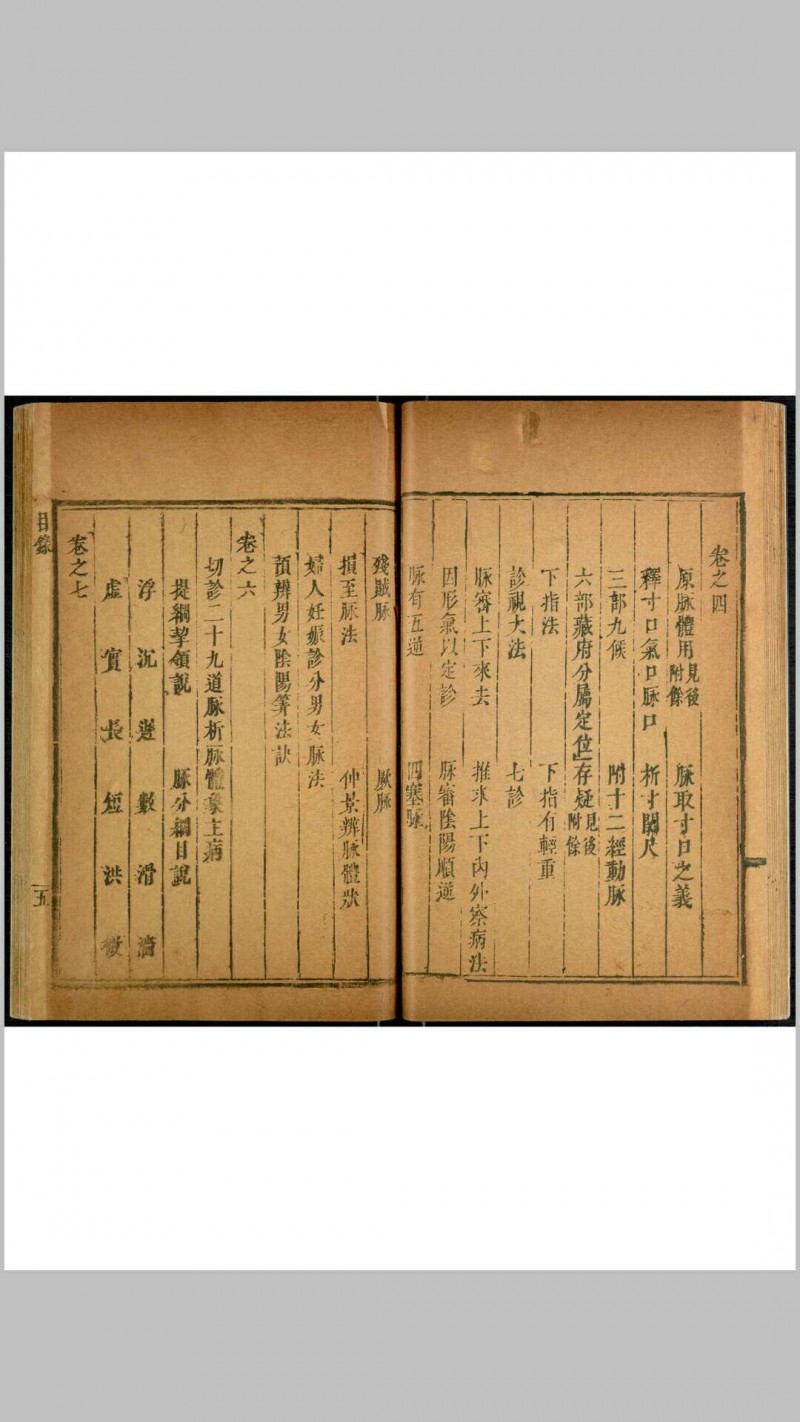 卷之四
原脉體用見後附餘 脉取寸口之義
釋寸口氣口脉口 析寸關尺
三部九候 附十二經動脉
六部藏府分屬定位存疑見後附餘
下指法 下指有輕重
診視大法 七診
脉審上下來去 推求上下內外察病法
因形氣以定診 脉審陰陽順逆
脉有五逆 四塞脉
殘賊脉 厥脉
損至脉法 仲景辨脉體狀
婦人妊娠診分男女脉法
預辨男女陰陽筭法訣
卷之六
切診二十九道脉析脉體象主病
提綱挈領說 脉分綱目說
浮 沉 遲 數 滑 濇
虛 實 長 短 洪 微
卷之七
目錄
五